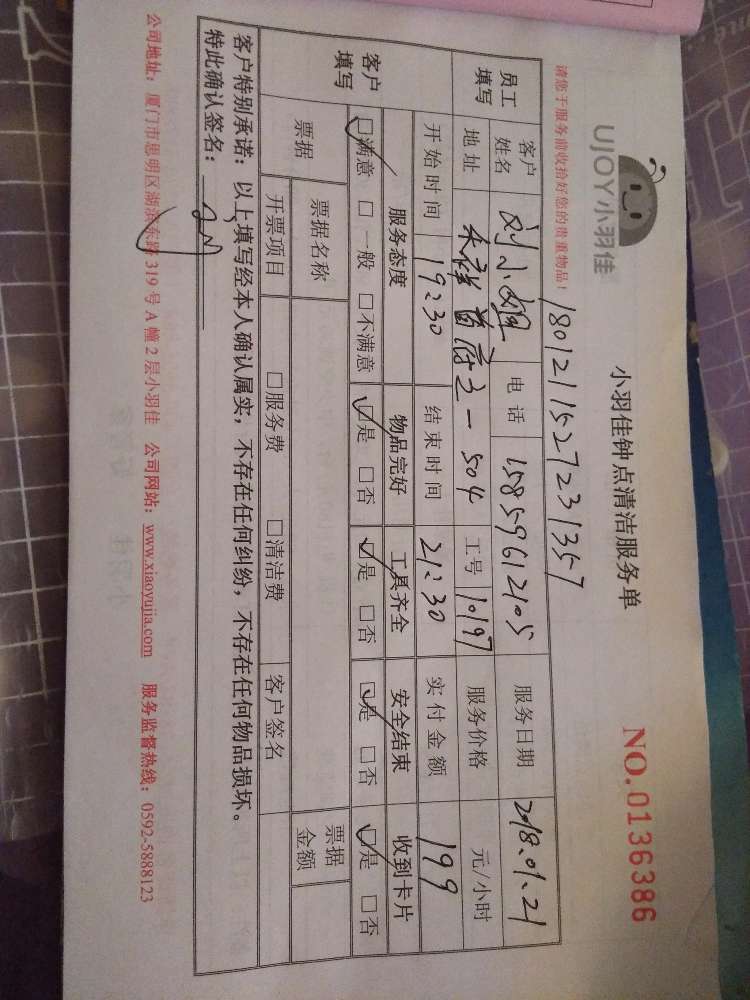 UJOY小羽佳
小羽佳钟点清洁服务单
NO.0136386
请您于服务前收拾好您的贵重物品！
1801211527231357
员工填写
客户姓名 刘小姐 电话 15859612105 服务日期 2018.01.21
地址 禾祥首府之一 504 工号 10197 服务价格 元/小时
开始时间 19:30 结束时间 21:30 实付金额 199
客户填写
服务态度 物品完好 工具齐全 安全结束 收到卡片
☑满意 □一般 □不满意 ☑是 □否 ☑是 □否 ☑是 □否 ☑是 □否
票据 票据名称 票据金额
开票项目 □服务费 □清洁费 客户签名
客户特别承诺：以上填写经本人确认属实，不存在任何纠纷，不存在任何物品损坏。
特此确认签名：
公司地址：厦门市思明区湖滨东路319号A幢2层小羽佳 公司网站：www.xiaoyujia.com 服务监督热线：0592-5888123